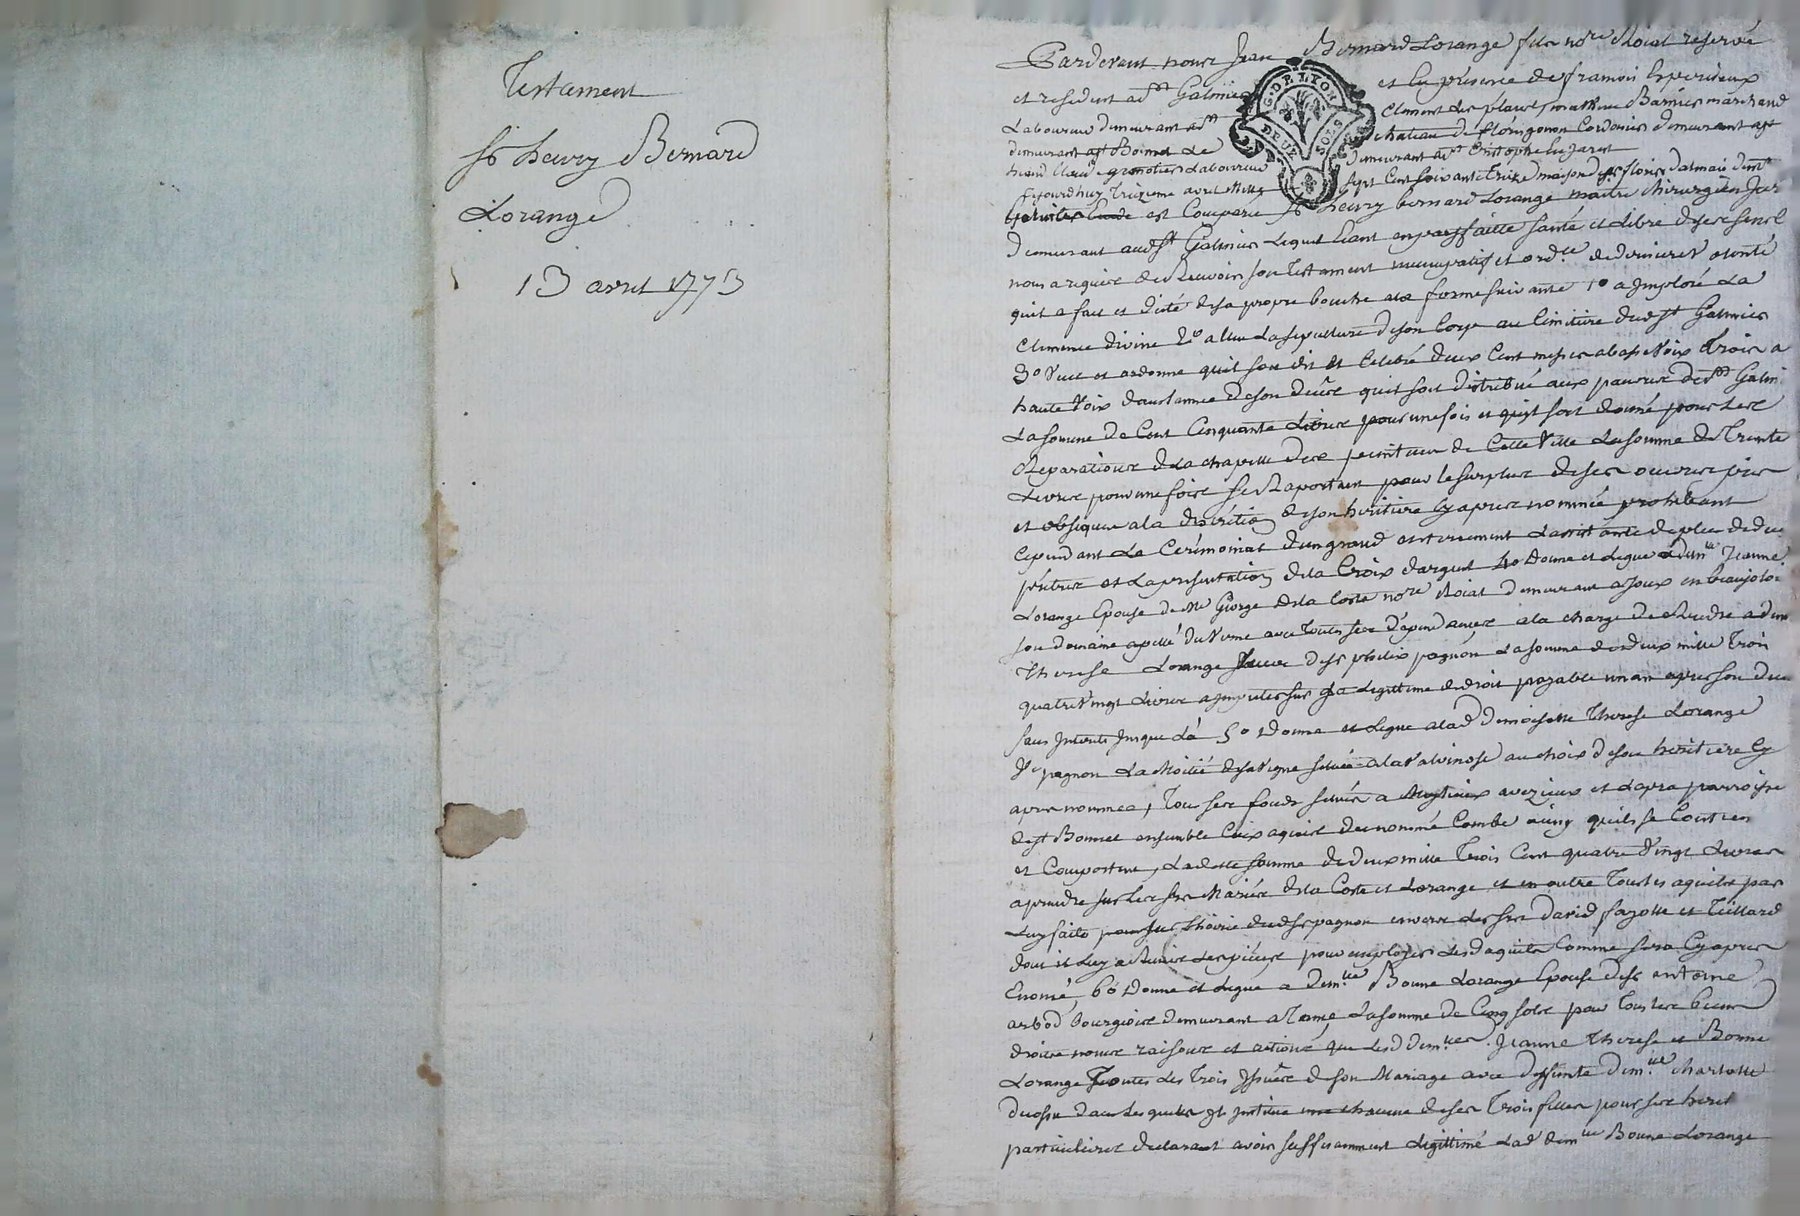 Testament
Sr henry Bernard
Lorange
13 avril 1773
Pardevant nous Jean Bernard Lorange fils nore Roial reservé
et resident a St Galmier et en présence de
G. DE LYON
DEUX SOLS
Laboureur demeurant a St Clement marchand
demeurant a St Bonnet Le chateau de Cordonier demeurant a St
Laboureur demeurant a St Cristophle
aujourdhuy Treizieme avril mille sept Cent soixante treize maison
est Comparu Sr henry bernard Lorange maitre chirurgien Juré
demeurant aud St Galmier Lequel Etant en parffaitte santé et Libre de ses sens
nous a requier de Recevoir son Testament nuncupatif et ordce de derniere Volonté
quil a fait et dicté de sa propre bouche a la forme suivante 1o a Jmploré La
Clemence divine 2o a Elue La sepulture de son Corps au Cimitiere dud St Galmier
3o Veut et ordonne quil soit dit et Celebré deux Cent messes a basse Voix Trois a
haute Voix dans Lannee de son decès quil soit distribué aux pauvres de St Galm.
La somme de Cent Cinquante Livres pour une fois et quil soit donné pour Les
Reparations de La chapelle des penitens de Cette Ville La somme de Trente
Livres pour une fois se Raportant pour le surplus de ses oeuvres pies
et obseques a la discrétion de son heritiere Cy apres nommée prohibant
Cependant Le Cerémonial dun grand enterrement Lassistance de plus de deux
prêtres et La présentation de la Croix dargent 4o Donne et Legue a demlle Jeanne
Lorange Epouse de Me George de la Coste nore Roial demeurant a Joux en beaujolois
son domaine apellé du Verne avec toutes ses dépendances a la charge de Rendre a dem
therese Lorange Veuve de Sr pagnon La somme de deux mille Trois
quatre Vingt Livres a Jmputer sur sa Legittime de droit payable un an apres son decès
sans Jnterets Jusques La 5o Donne et Legue a lad demoiselle Therese Lorange
Ve pagnon La Moitié de sa Vigne située a la Valvinose au choix de son heritiere Cy
apres nommee, Tous ses fonds situés a avezieux et Lapra parroisse
de St Bonnet ensemble Ceux aquis du nommé Combe ainsy quils se Contien
et Comportent, La ditte somme de deux mille Trois Cent quatre Vingt Livres
a prendre sur Les srs Mariés de la Coste et Lorange et en outre Tous Les aquits par
Luy faits pour Lhoirie dud Sr pagnon envers Les srs David fayolle et Tillard
dont il Luy a Remis Les pièces pour employer Lesd aquits Comme sera Cy apres
Enoncé, 6o Donne et Legue a demlle Bonne Lorange Epouse de Sr antoine
arbod bourgeois demeurant a La somme de Cinq sols pour Tous Les biens
droits noms raisons et actions que Lesd demlles Jeanne Therese et Bonne
Lorange Toutes Les Trois Jssües de son Mariage avec deffunte demlle charlotte
dans Lesquels il Jnstitue une chacune de ses Trois filles pour ses herit
particulieres declarant avoir suffisamment Legittimé Lad demlle Bonne Lorange